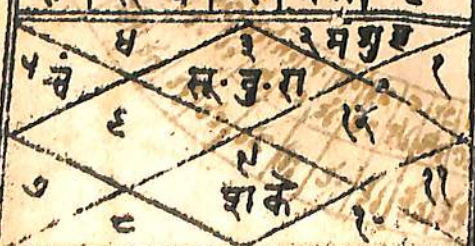 ४ ३ २ मं शु बृ
५ चं सू. बु. रा १
६ १२
९
७ श के ११
८ १०